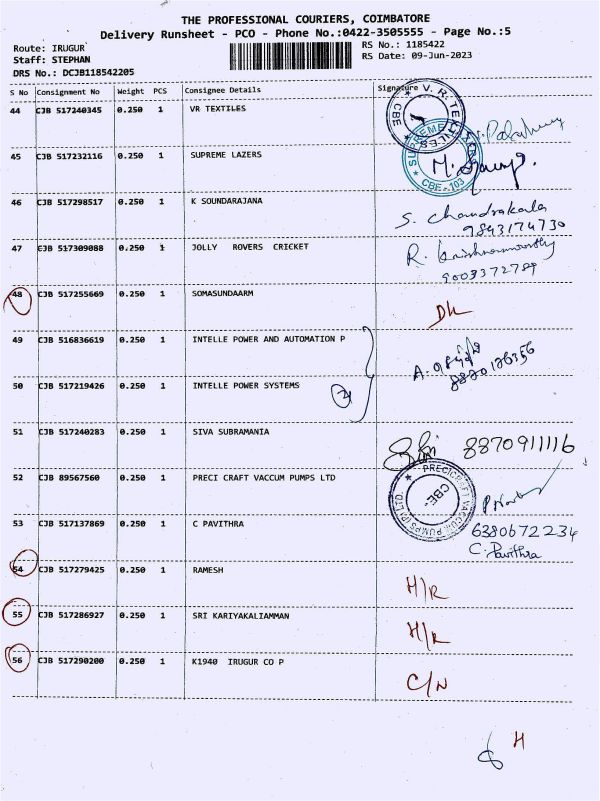 THE PROFESSIONAL COURIERS, COIMBATORE
Delivery Runsheet - PCO - Phone No.:0422-3505555 - Page No.:5
Route: IRUGUR
RS No.: 1185422
Staff: STEPHAN
RS Date: 09-Jun-2023
DRS No.: DCJB118542205
S No Consignment No Weight PCS Consignee Details Signature
44 CJB 517240345 0.250 1 VR TEXTILES
V. R. TE CBE
45 CJB 517232116 0.250 1 SUPREME LAZERS
SUPREME CBE-103
46 CJB 517298517 0.250 1 K SOUNDARAJANA
S. Chandrakala
9843174730
47 CJB 517309088 0.250 1 JOLLY ROVERS CRICKET
R. Krishnamoorthy
9003372789
48 CJB 517255669 0.250 1 SOMASUNDAARM
DL
49 CJB 516836619 0.250 1 INTELLE POWER AND AUTOMATION P
8870126356
50 CJB 517219426 0.250 1 INTELLE POWER SYSTEMS
51 CJB 517240283 0.250 1 SIVA SUBRAMANIA
8870911116
52 CJB 89567560 0.250 1 PRECI CRAFT VACCUM PUMPS LTD
PRECICRAFT VACCUM PUMPS (P) LTD. CBE-
53 CJB 517137869 0.250 1 C PAVITHRA
6380672234
C. Pavithra
54 CJB 517279425 0.250 1 RAMESH
H/R
55 CJB 517286927 0.250 1 SRI KARIYAKALIAMMAN
H/R
56 CJB 517290200 0.250 1 K1940 IRUGUR CO P
C/N
H